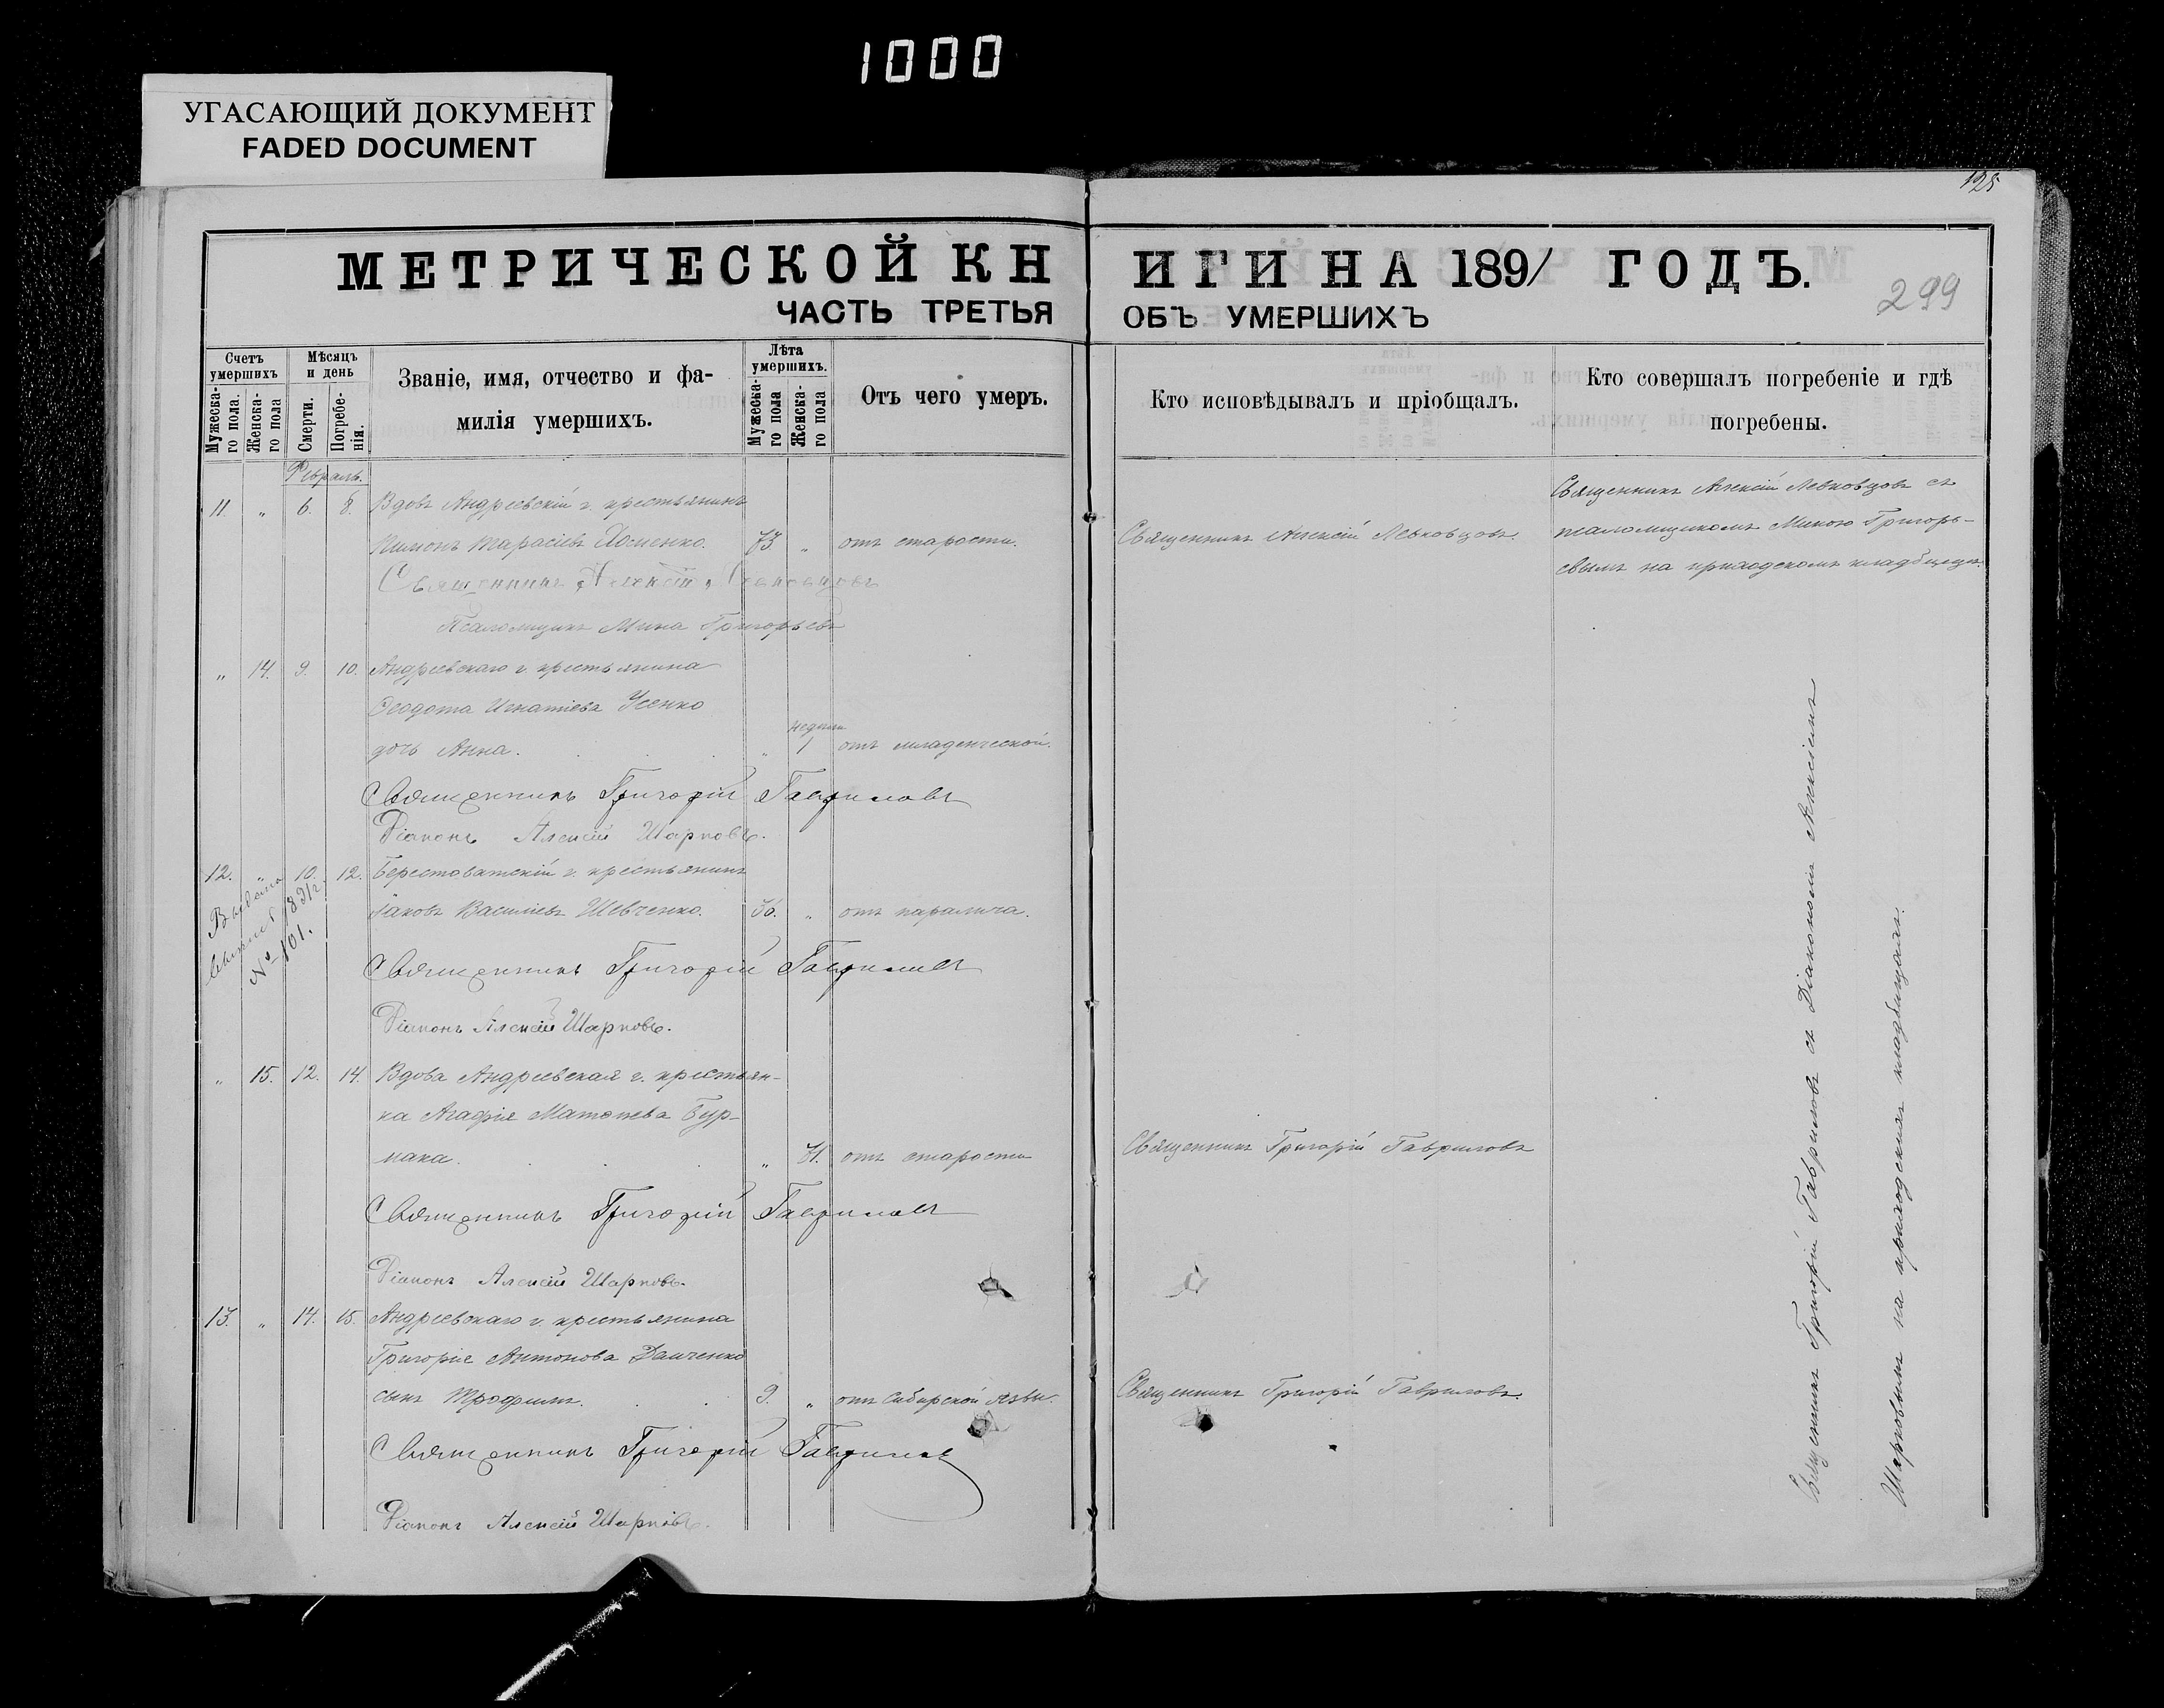 1000
УГАСАЮЩИЙ ДОКУМЕНТ
FADED DOCUMENT
125
МЕТРИЧЕСКОЙ КНИГИ НА 1891 ГОДЪ.
299
ЧАСТЬ ТРЕТЬЯ ОБЪ УМЕРШИХЪ
Счетъ умершихъ
Мужеска-го пола.
Женска-го пола
Мѣсяцъ и день
Смерти.
Погребе-нія.
Званіе, имя, отчество и фа-
милія умершихъ.
Лѣта умершихъ.
Мужеска-го пола
Женска-го пола
Отъ чего умеръ.
Кто исповѣдывалъ и пріобщалъ.
Кто совершалъ погребеніе и гдѣ
погребены.
Февраль.
11. " 6. 8. Вдовъ Андреевскій г. крестьянинъ
Тарасіевъ Хоменко. 73 " отъ старости. Священникъ Алексій Левковцовъ.
Священникъ Алексій Левковцовъ съ
псаломщикомъ Миною Григорь-
евымъ на приходскомъ кладбищѣ.
Священникъ Алексій Левковцовъ
Псаломщикъ Мина Григорьевъ
" 14. 9. 10. Андреевскаго г. крестьянина
Ѳеодота Игнатіева Усенко
дочь Анна. " недѣли 1 отъ младенческой.
Священникъ Григорій Гавриловъ
Діаконъ Алексій Шарповъ.
12. " 10. 12. Берестоватскій г. крестьянинъ
Іаковъ Василіевъ Шевченко. 36. " отъ паралича.
Выдана
1891 г.
№ 101.
Священникъ Григорій Гавриловъ
Діаконъ Алексій Шарповъ.
" 15. 12. 14. Вдова Андреевская г. крестьян-
ка Агафія Матѳіева Бур-
лака. " 71. отъ старости Священникъ Григорій Гавриловъ
Священникъ Григорій Гавриловъ
Діаконъ Алексій Шарповъ.
13. " 14. 15. Андреевскаго г. крестьянина
Григорія Антонова Данченко
сынъ Трофимъ. 9. " отъ сибирской язвы. Священникъ Григорій Гавриловъ.
Священникъ Григорій Гавриловъ
Діаконъ Алексій Шарповъ.
Священникъ Григорій Гавриловъ съ Діакономъ Алексіемъ
Шарповымъ на приходскихъ кладбищахъ.